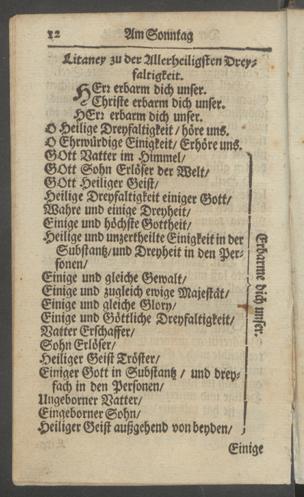 12 Am Sonntag
Litaney zu der Allerheiligsten Drey-
faltigkeit.
HErr erbarm dich unser.
Christe erbarm dich unser.
HErr erbarm dich unser.
O Heilige Dreyfaltigkeit / höre uns.
O Ehrwürdige Einigkeit / Erhöre uns.
GOtt Vatter im Himmel /
GOtt Sohn Erlöser der Welt /
GOtt Heiliger Geist /
Heilige Dreyfaltigkeit einiger Gott /
Wahre und einige Dreyheit /
Einige und höchste Gottheit /
Heilige und unzertheilte Einigkeit in der
Substantz / und Dreyheit in den Per-
sonen /
Einige und gleiche Gewalt /
Einige und zugleich ewige Majestät /
Einige und gleiche Glory /
Einige und Göttliche Dreyfaltigkeit /
Vatter Erschaffer /
Sohn Erlöser /
Heiliger Geist Tröster /
Einiger Gott in Substantz / und drey-
fach in den Personen /
Ungeborner Vatter /
Eingeborner Sohn /
Heiliger Geist außgehend von beyden /
Erbarme dich unser.
Einige